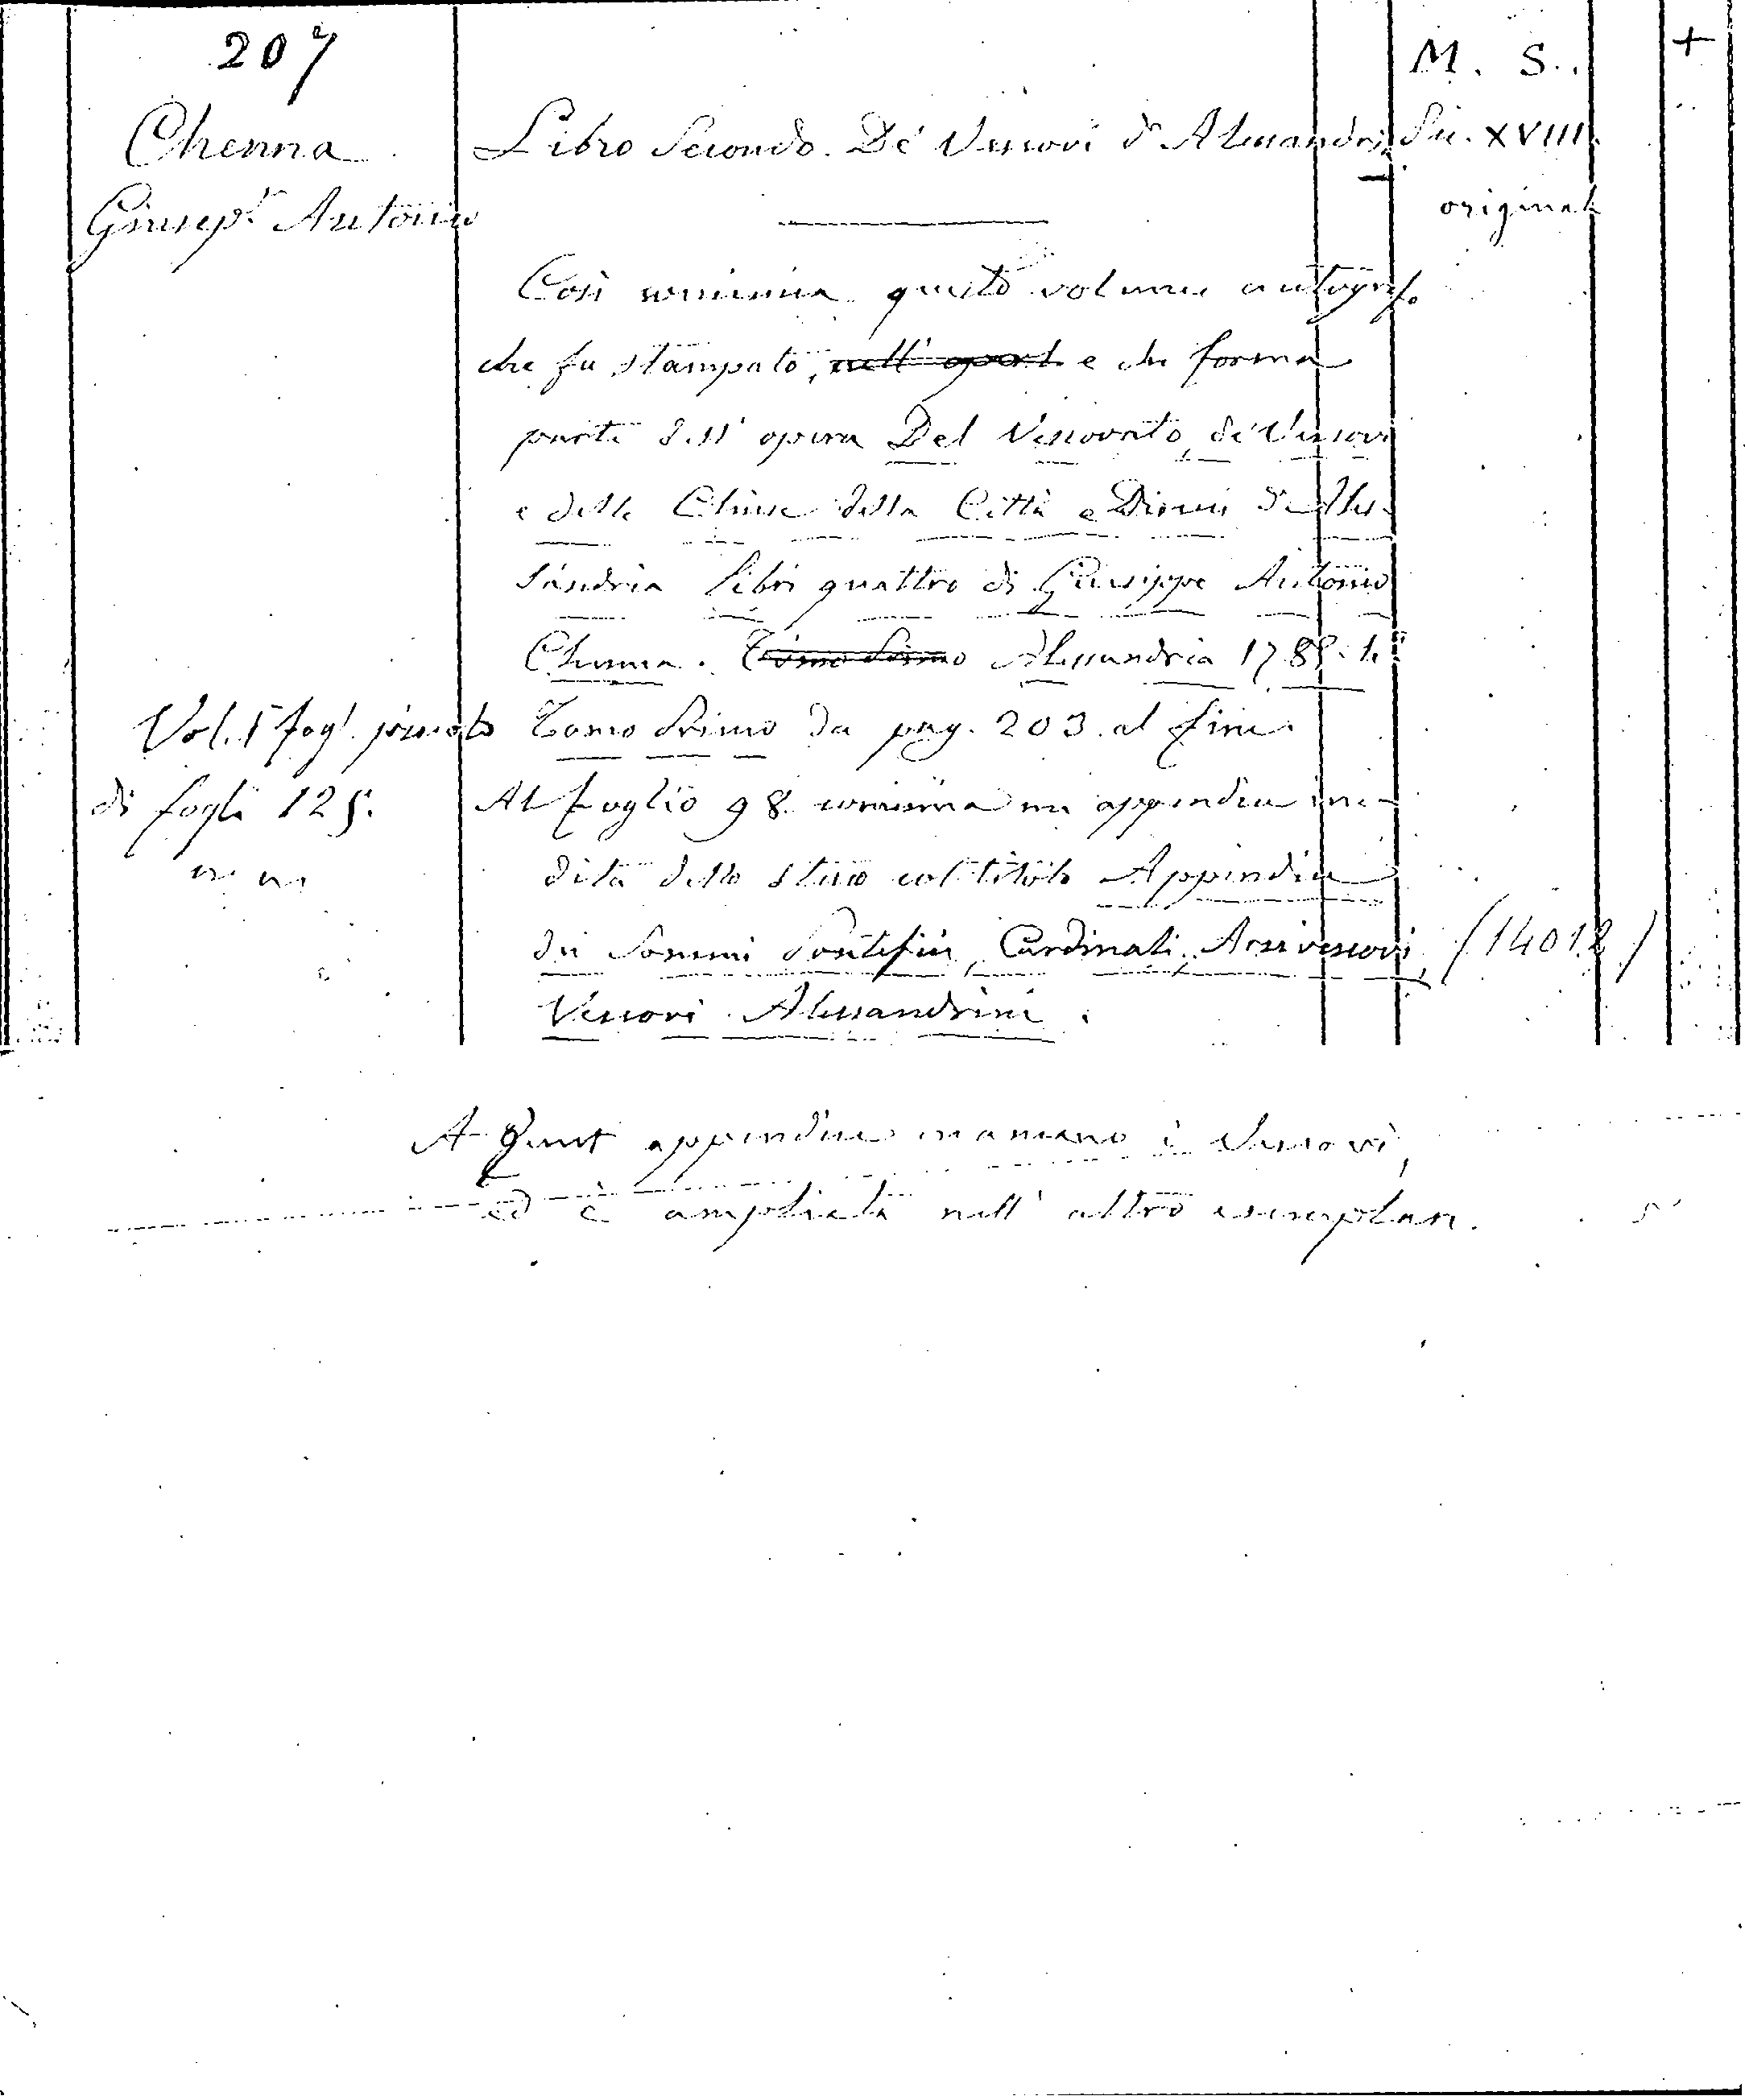 207
M. S.
+
Chenna
Giusep.e Antonio
Libro Secondo. De' Vescovi d'Alessandria
Sec. XVIII.
originale
Così comincia questo volume autografo
che fu stampato, nell' opera e che forma
parte dell' opera Del Vescovato, de' Vescovi
e delle Chiese della Città e Diocesi d'Ales-
sandria libri quattro di Giuseppe Antonio
Chenna. Tomo Primo Alessandria 1785.
Vol. 1 fogl. piccolo
di fogli 125.
Tomo Primo da pag. 203. al fine.
Al foglio 98. comincia un appendice ine-
dita dello stesso col titolo Appendice
dei Sommi Pontefici, Cardinali, Arcivescovi,
(14012)
Vescovi Alessandrini.
A quest appendice mancano i Vescovi,
ed è ampliata nell' altro esemplare.